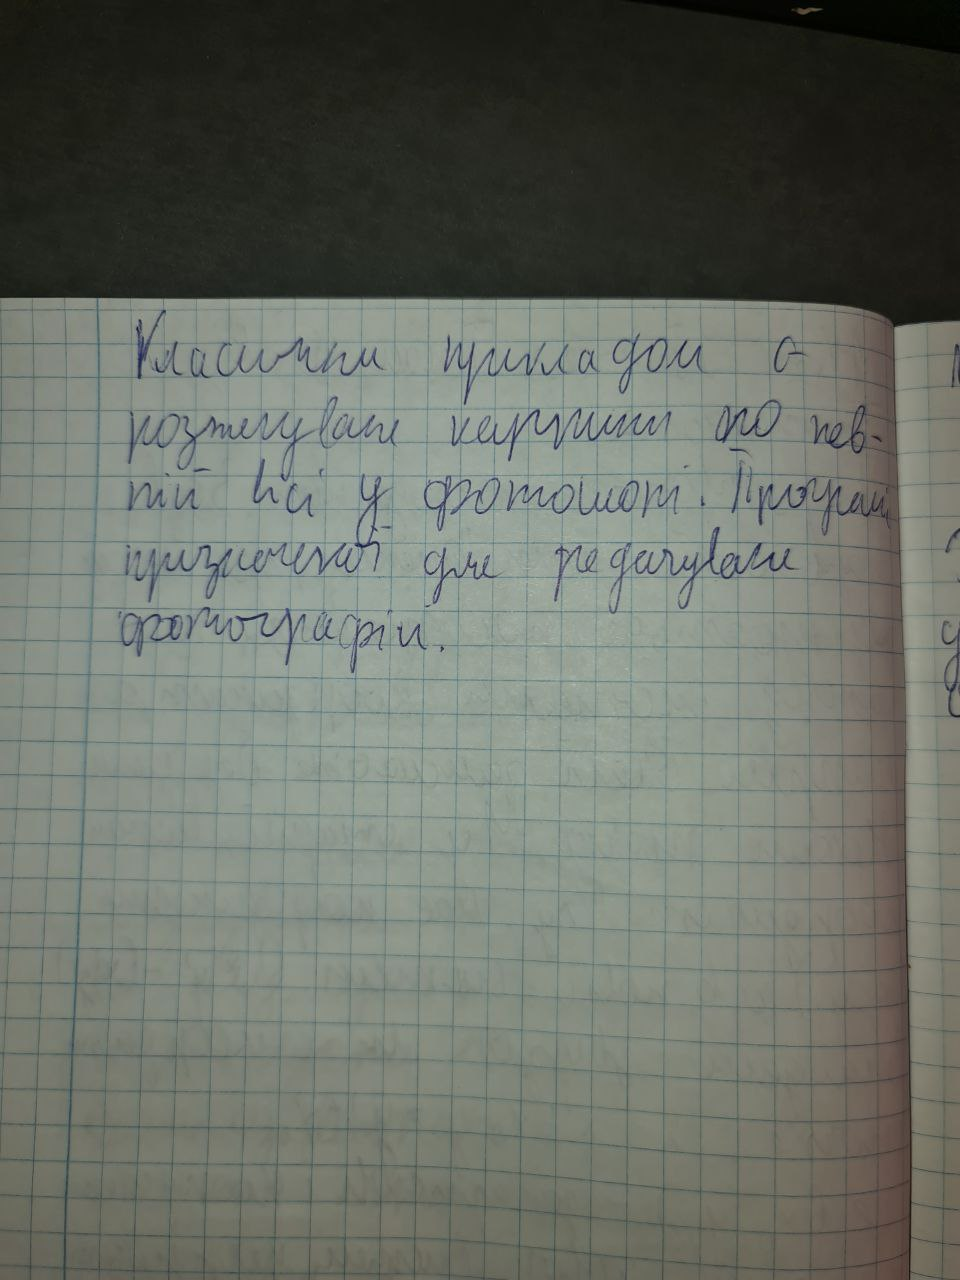 Класичним прикладом є
розтягування картинки по пев-
ній вісі у фотошопі. Програмі
призначеної для редагування
фотографій.